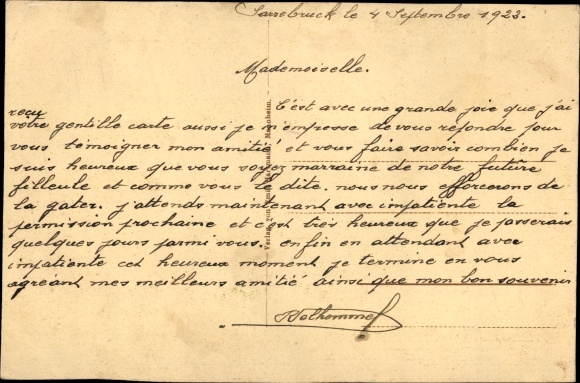 Sarrebruck le 4 Septembre 1923.
Mademoiselle.
C'est avec une grande joie que j'ai
reçu
votre gentille carte aussi je m'empresse de vous repondre pour
vous témoigner mon amitié et vous faire savoir combien je
suis heureux que vous soyez marraine de notre future
filleule et comme vous le dite. nous nous efforcerons de
la gater. j'attends maintenant avec impatiente la
permission prochaine et c'est très heureux que je passerais
quelques jours parmi vous. enfin en attendant avec
impatiente cet heureux moment je termine en vous
agreant mes meilleurs amitié ainsi que mon bon souvenir